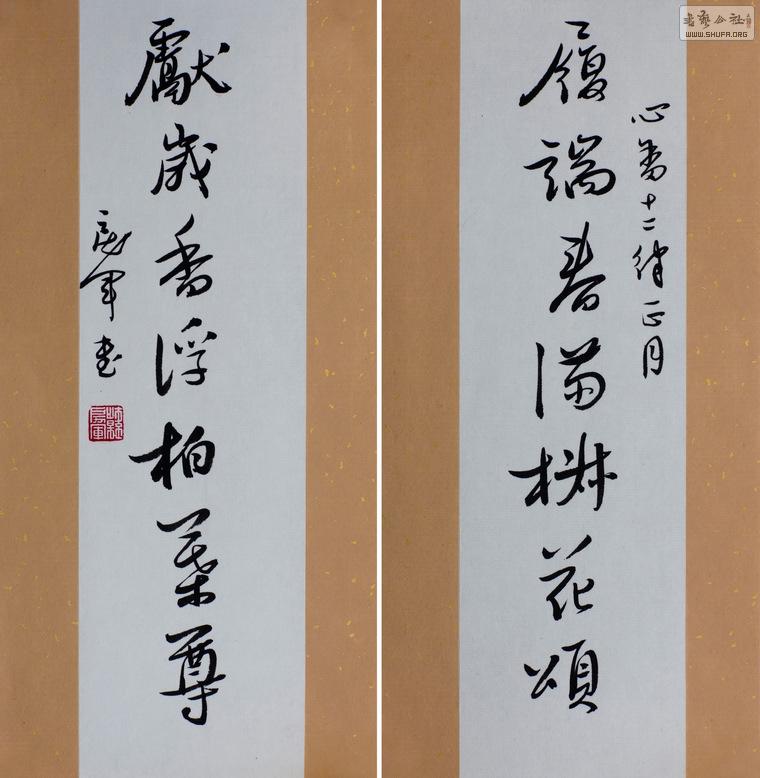 書藝公社
WWW.SHUFA.ORG
心 十二 正月
履端春滿椒花頌
獻歲香浮柏葉尊